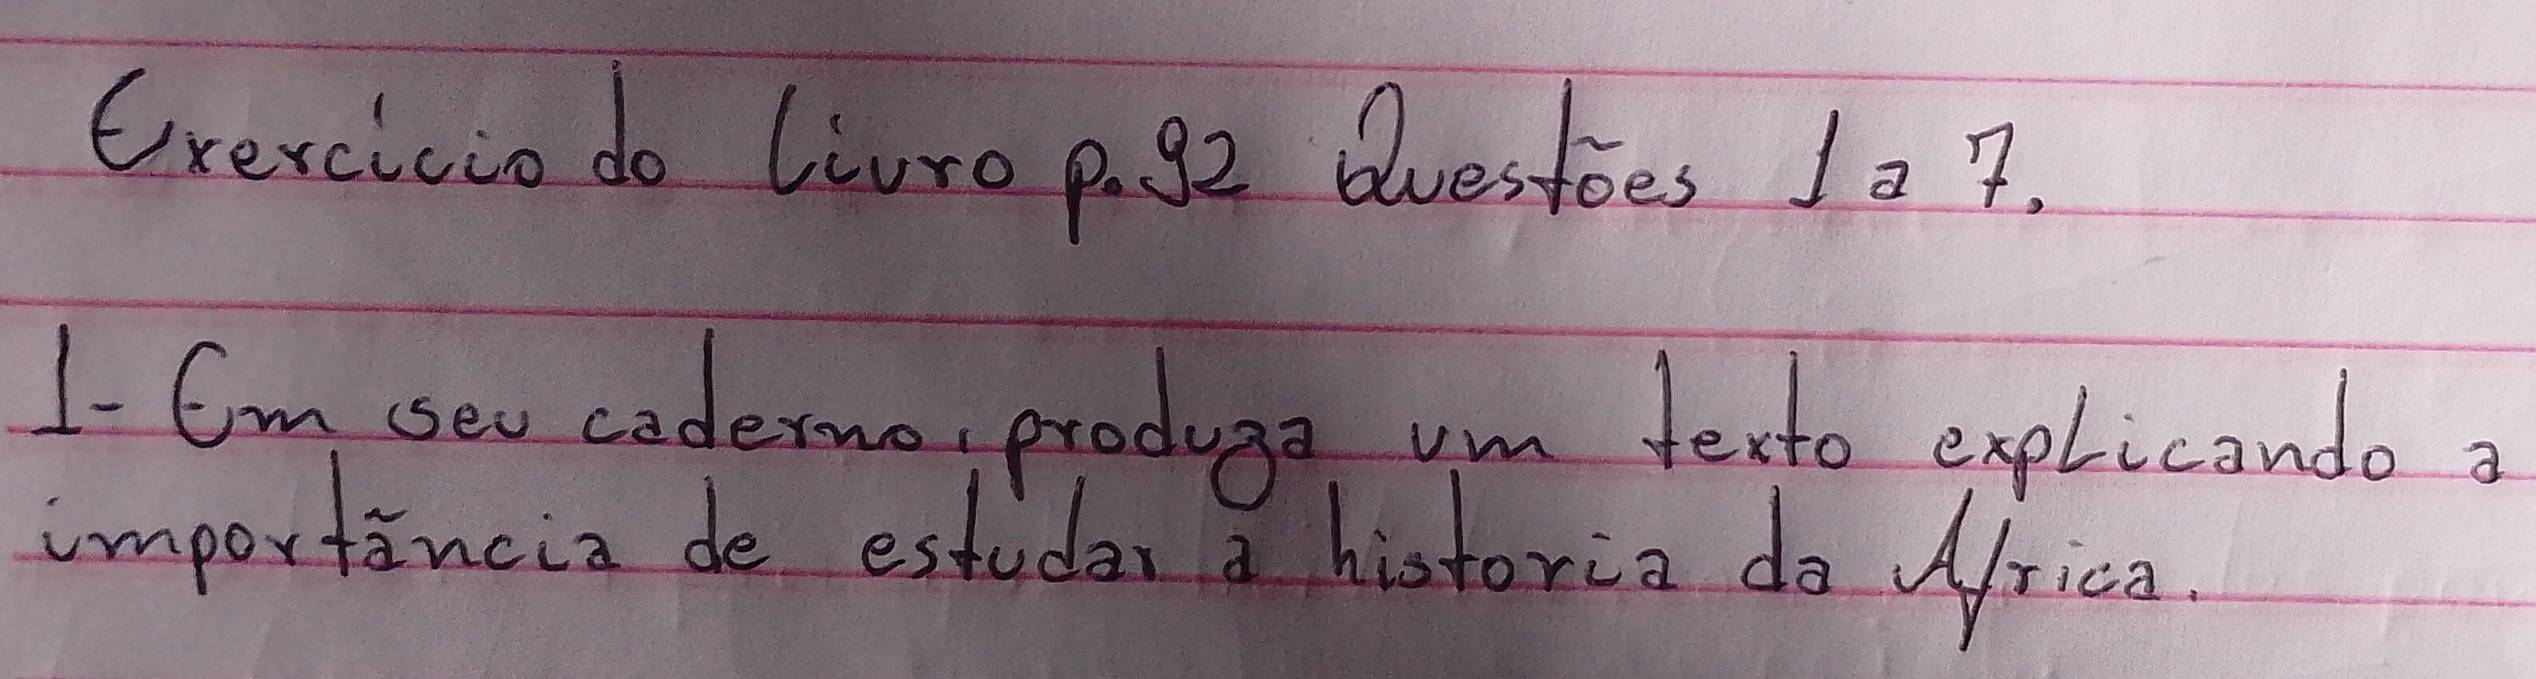 Exercício do livro p.92 Questões 1 a 7.
1- Em seu caderno, produza um texto explicando a
importãncia de estudar a historia da Africa.